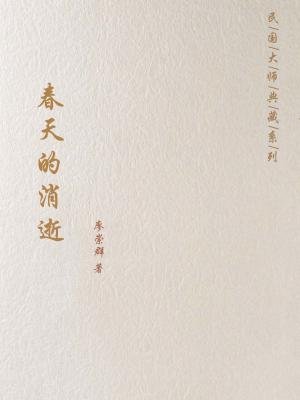 民国大师典藏系列
春天的消逝
廖崇群 著